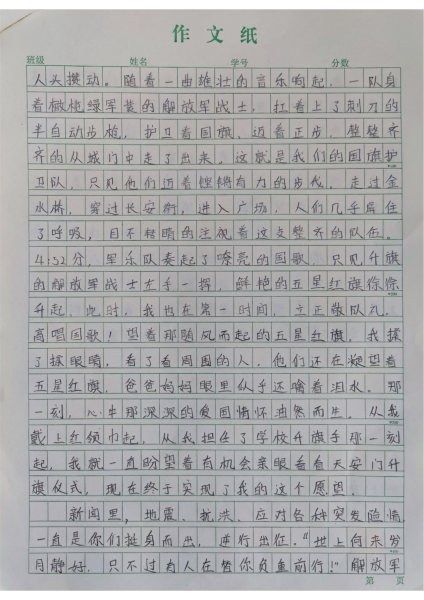 作文纸
班级 姓名 学号 分数
人头攒动。随着一曲雄壮的音乐响起,一队身
着橄榄绿军装的解放军战士,扛着上了刺刀的
半自动步枪,护卫着国旗,迈着正步,整整齐
齐的从城门中走了出来。这就是我们的国旗护
卫队,只见他们迈着铿锵有力的步伐,走过金
水桥,穿过长安街,进入广场,人们几乎屏住
了呼吸,目不转睛的注视着这支整齐的队伍。
4:52分,军乐队奏起了嘹亮的国歌,只见升旗
的解放军战士左手一挥,鲜艳的五星红旗徐徐
升起,此时,我也在第一时间,立正敬队礼,
高唱国歌!望着那随风而起的五星红旗,我揉
了揉眼睛,看了看周围的人,他们还在凝望着
五星红旗,爸爸妈妈眼里似乎还噙着泪水。那
一刻,心中那深深的爱国情怀油然而生。从我
戴上红领巾起,从我担任了学校升旗手那一刻
起,我就一直盼望着有机会亲眼看看天安门升
旗仪式,现在终于实现了我的这个愿望。
新闻里,地震、抗洪、应对各种突发险情
一直是你们挺身而出,逆行出征。"世上何来岁
月静好,只不过有人在替你负重前行!"解放军
第 页